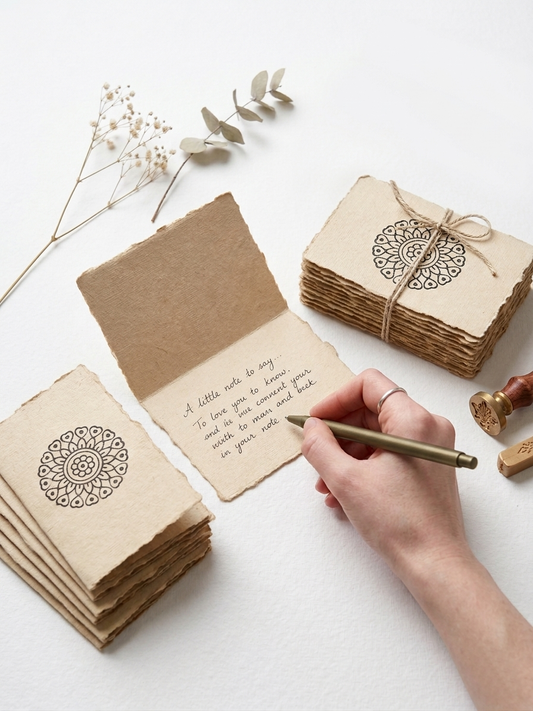 A little note to say...
To love you to know.
and is we connent your
wirth to man and beek
in your note